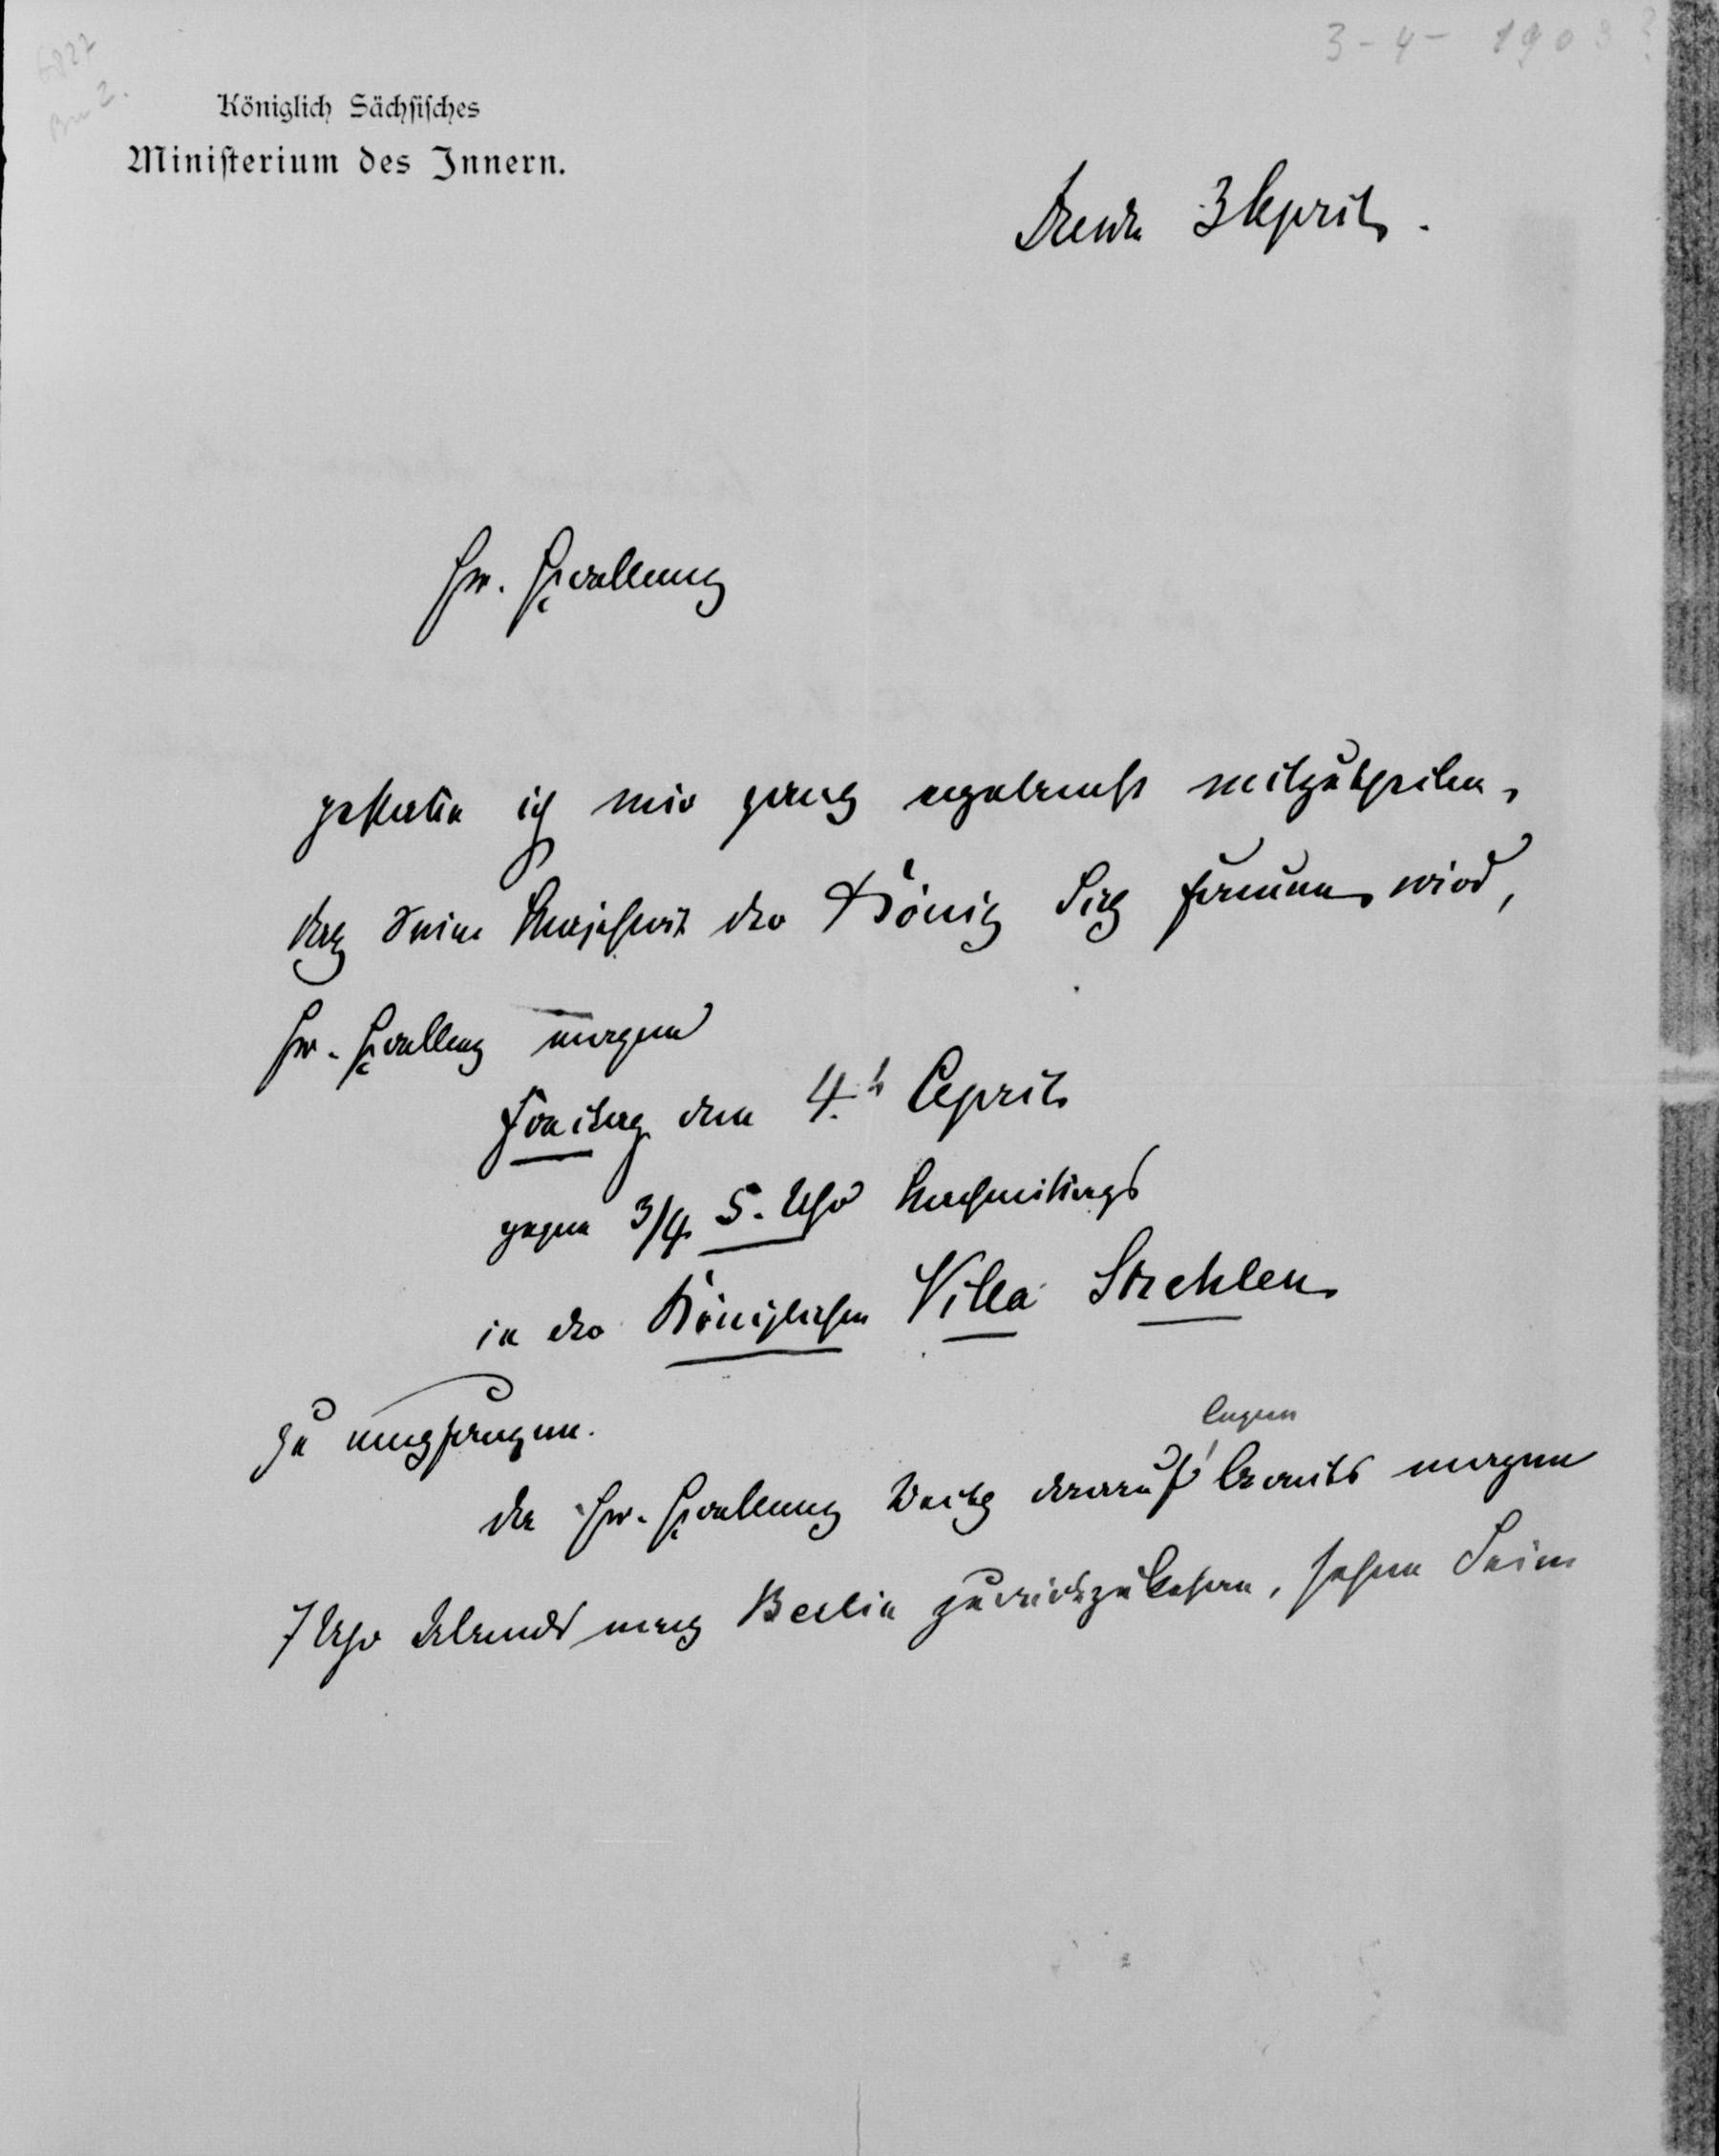 6827
3-4-1903?
Königlich Sächsisches
Ministerium des Innern.
3 April.
Ew. Excellenz
gestatte ich mir ganz ergebenst mitzutheilen,
daß Seine Majestät der König Sich freuen wird,
Ew. Excellenz morgen
Freitag den 4. April
gegen 3/4 5. Uhr Nachmittags
in der Königlichen Villa Strehlen
zu empfangen.
legen
Da Ew. Excellenz Werth darauf bereits morgen
7 Uhr Abends nach Berlin zurückzukehren, sehen Seine